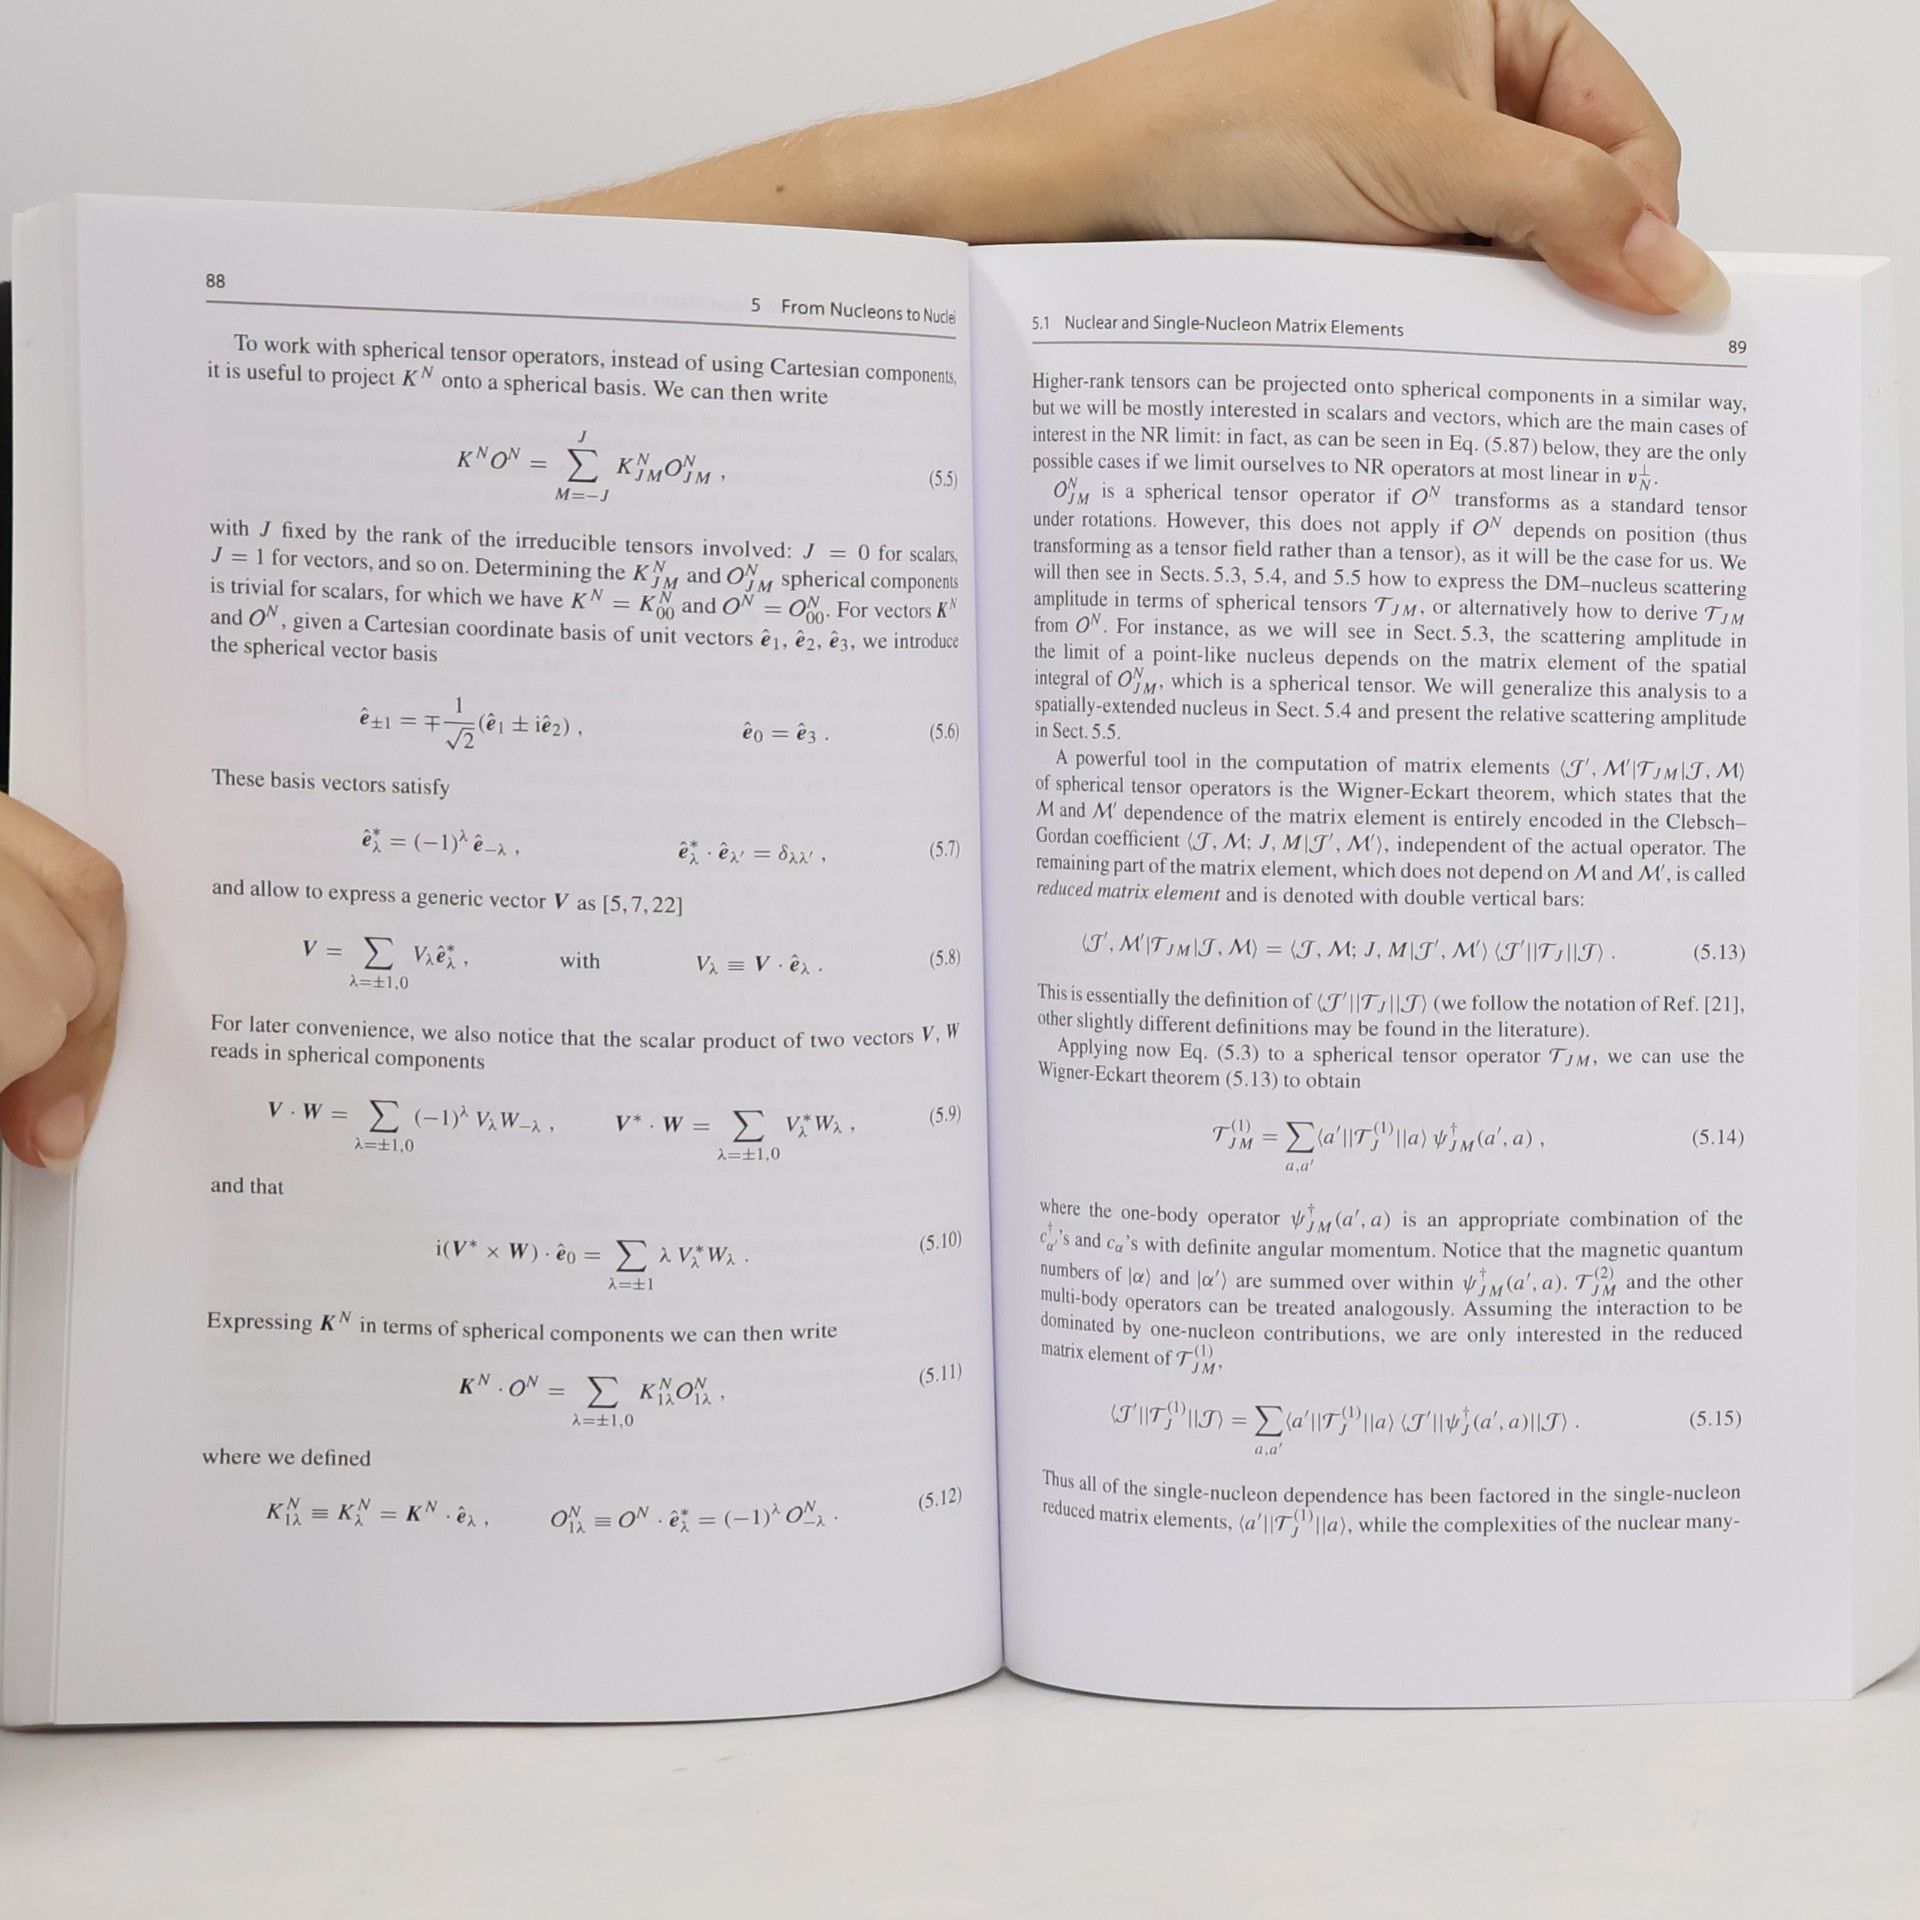 88
5 From Nucleons to Nuclei
To work with spherical tensor operators, instead of using Cartesian components,
it is useful to project K^N onto a spherical basis. We can then write
K^N O^N = ∑_{M=−J}^{J} K^N_{JM} O^N_{JM} , (5.5)
with J fixed by the rank of the irreducible tensors involved: J = 0 for scalars,
J = 1 for vectors, and so on. Determining the K^N_{JM} and O^N_{JM} spherical components
is trivial for scalars, for which we have K^N = K^N_{00} and O^N = O^N_{00}. For vectors K^N
and O^N, given a Cartesian coordinate basis of unit vectors ê_1, ê_2, ê_3, we introduce
the spherical vector basis
ê_{±1} = ∓ 1/√2 (ê_1 ± iê_2) , ê_0 = ê_3 . (5.6)
These basis vectors satisfy
ê*_λ = (−1)^λ ê_{−λ} , ê*_λ · ê_{λ′} = δ_{λλ′} , (5.7)
and allow to express a generic vector V as [5, 7, 22]
V = ∑_{λ=±1,0} V_λ ê*_λ , with V_λ ≡ V · ê_λ . (5.8)
For later convenience, we also notice that the scalar product of two vectors V, W
reads in spherical components
V · W = ∑_{λ=±1,0} (−1)^λ V_λ W_{−λ} , V* · W = ∑_{λ=±1,0} V*_λ W_λ , (5.9)
and that
i(V* × W) · ê_0 = ∑_{λ=±1} λ V*_λ W_λ . (5.10)
Expressing K^N in terms of spherical components we can then write
K^N · O^N = ∑_{λ=±1,0} K^N_{1λ} O^N_{1λ} , (5.11)
where we defined
K^N_{1λ} ≡ K^N_λ = K^N · ê_λ , O^N_{1λ} ≡ O^N · ê*_λ = (−1)^λ O^N_{−λ} . (5.12)
5.1 Nuclear and Single-Nucleon Matrix Elements
89
Higher-rank tensors can be projected onto spherical components in a similar way,
but we will be mostly interested in scalars and vectors, which are the main cases of
interest in the NR limit: in fact, as can be seen in Eq. (5.87) below, they are the only
possible cases if we limit ourselves to NR operators at most linear in v^⊥_N.
O^N_{JM} is a spherical tensor operator if O^N transforms as a standard tensor
under rotations. However, this does not apply if O^N depends on position (thus
transforming as a tensor field rather than a tensor), as it will be the case for us. We
will then see in Sects. 5.3, 5.4, and 5.5 how to express the DM–nucleus scattering
amplitude in terms of spherical tensors 𝒯_{JM}, or alternatively how to derive 𝒯_{JM}
from O^N. For instance, as we will see in Sect. 5.3, the scattering amplitude in
the limit of a point-like nucleus depends on the matrix element of the spatial
integral of O^N_{JM}, which is a spherical tensor. We will generalize this analysis to a
spatially-extended nucleus in Sect. 5.4 and present the relative scattering amplitude
in Sect. 5.5.
A powerful tool in the computation of matrix elements ⟨𝒥′, ℳ′|𝒯_{JM}|𝒥, ℳ⟩
of spherical tensor operators is the Wigner-Eckart theorem, which states that the
ℳ and ℳ′ dependence of the matrix element is entirely encoded in the Clebsch–
Gordan coefficient ⟨𝒥, ℳ; J, M|𝒥′, ℳ′⟩, independent of the actual operator. The
remaining part of the matrix element, which does not depend on ℳ and ℳ′, is called
reduced matrix element and is denoted with double vertical bars:
⟨𝒥′, ℳ′|𝒯_{JM}|𝒥, ℳ⟩ = ⟨𝒥, ℳ; J, M|𝒥′, ℳ′⟩ ⟨𝒥′||𝒯_J||𝒥⟩ . (5.13)
This is essentially the definition of ⟨𝒥′||𝒯_J||𝒥⟩ (we follow the notation of Ref. [21],
other slightly different definitions may be found in the literature).
Applying now Eq. (5.3) to a spherical tensor operator 𝒯_{JM}, we can use the
Wigner-Eckart theorem (5.13) to obtain
𝒯^{(1)}_{JM} = ∑_{a,a′} ⟨a′||𝒯^{(1)}_J||a⟩ ψ^†_{JM}(a′, a) , (5.14)
where the one-body operator ψ^†_{JM}(a′, a) is an appropriate combination of the
c^†_{α′}'s and c_α's with definite angular momentum. Notice that the magnetic quantum
numbers of |α⟩ and |α′⟩ are summed over within ψ^†_{JM}(a′, a). 𝒯^{(2)}_{JM} and the other
multi-body operators can be treated analogously. Assuming the interaction to be
dominated by one-nucleon contributions, we are only interested in the reduced
matrix element of 𝒯^{(1)}_{JM},
⟨𝒥′||𝒯^{(1)}_J||𝒥⟩ = ∑_{a,a′} ⟨a′||𝒯^{(1)}_J||a⟩ ⟨𝒥′||ψ^†_J(a′, a)||𝒥⟩ . (5.15)
Thus all of the single-nucleon dependence has been factored in the single-nucleon
reduced matrix elements, ⟨a′||𝒯^{(1)}_J||a⟩, while the complexities of the nuclear many-